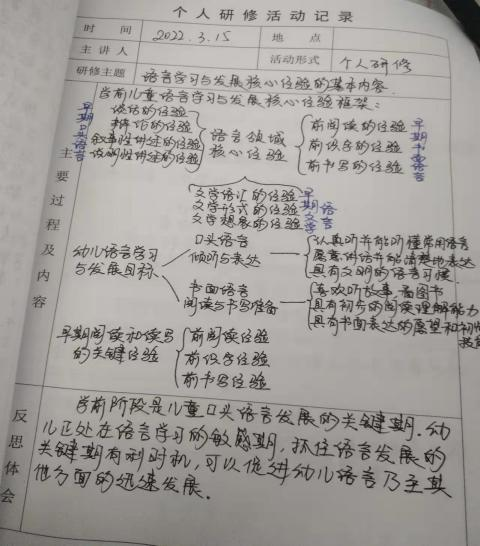 个人研修活动记录
时间 2022.3.15 地点
主讲人 活动形式 个人研修
研修主题 语言学习与发展核心经验的基本内容.
主要过程及内容
学前儿童语言学习与发展核心经验框架:
早期口头语言
谈话的经验
辩论的经验
叙事性讲述的经验
说明性讲述的经验
语言领域
核心经验
前阅读的经验
前识字的经验
前书写的经验
早期书面语言
文学语汇的经验
文学形式的经验
文学想象的经验
早期文学语言
幼儿语言学习
与发展目标
口头语言
倾听与表达
认真听并能听懂常用语言
愿意讲话并能清楚地表达
具有文明的语言习惯.
书面语言
阅读与书写准备
喜欢听故事,看图书
具有初步的阅读理解能力
具有书面表达的愿望和初步技能
早期阅读和读写
的关键经验
前阅读经验
前识字经验
前书写经验
反思体会
学前阶段是儿童口头语言发展的关键期.幼
儿正处在语言学习的敏感期,抓住语言发展的
关键期有利时机,可以促进幼儿语言乃至其
他方面的迅速发展.